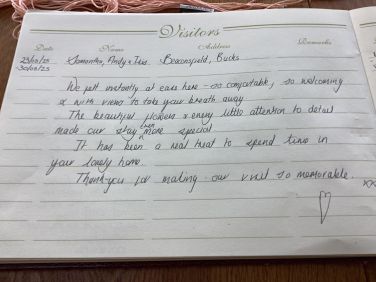 Visitors
Date Name Address Remarks
23/05/25 Samantha, Andy + Isia Beaconsfield, Bucks
-30/05/25
We felt instantly at ease here - so comfortable, so welcoming
& with views to take your breath away
The beautiful flowers & every little attention to detail
made our stay even more special
It has been a real treat to spend time in
your lovely home.
Thank-you for making our visit so memorable.
xx